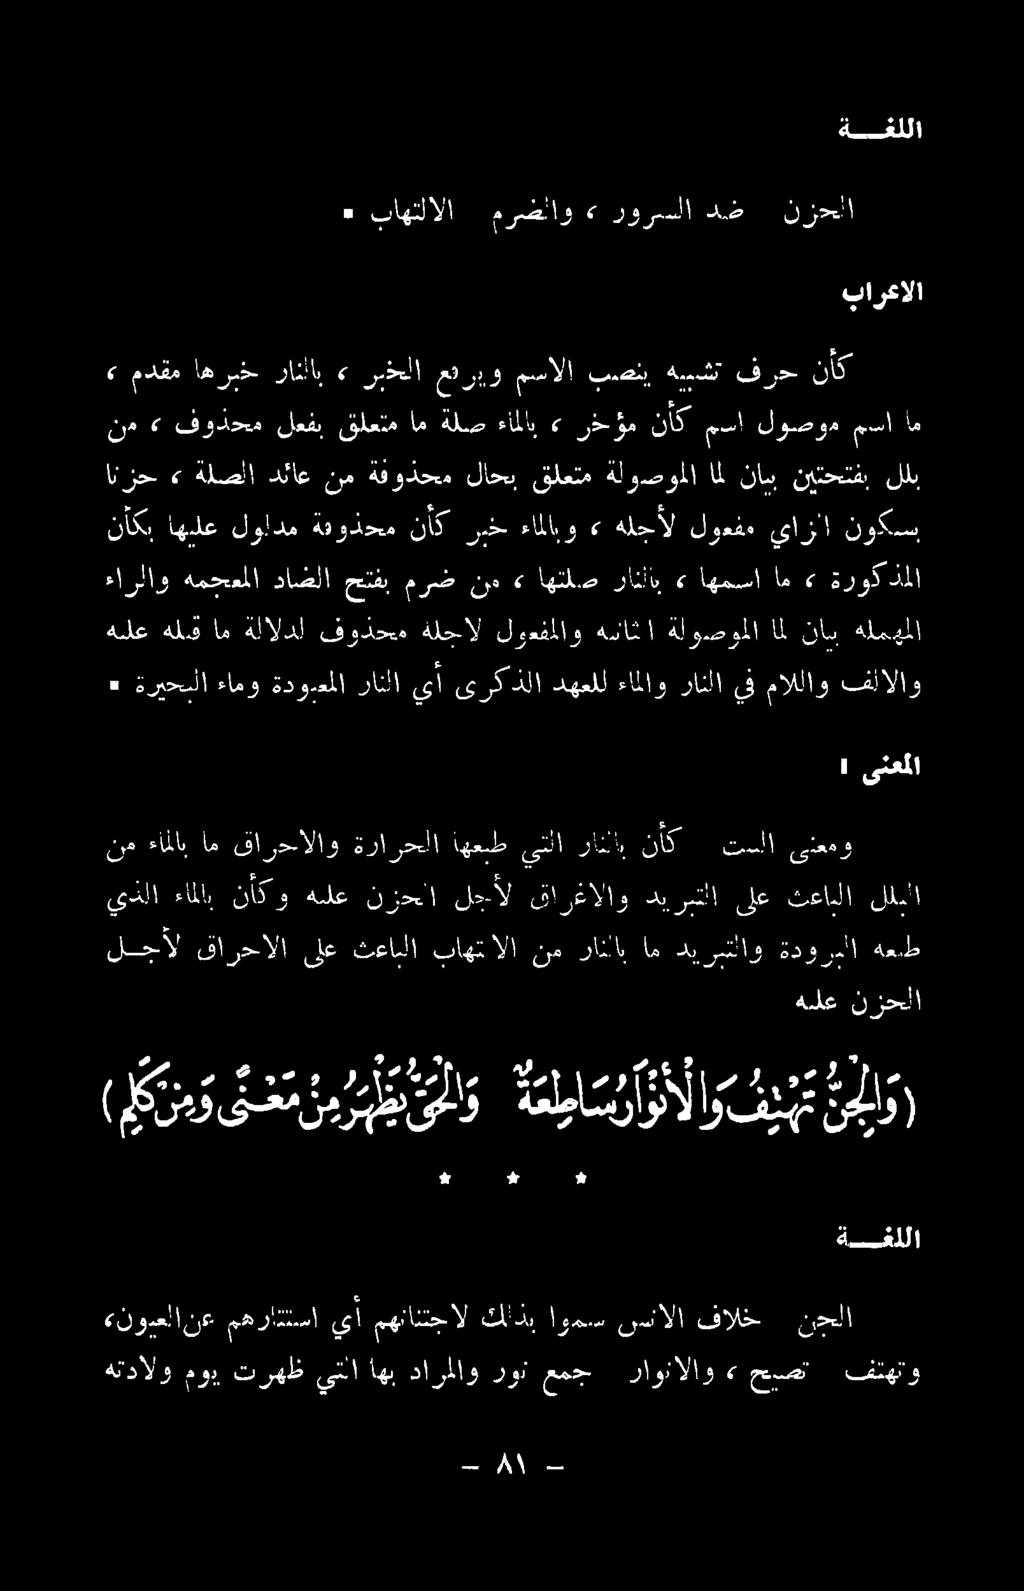 اللغـــة
الحزن ضد السرور ، والضرم الالتهاب .
الاعراب
كأن حرف تشبيه ينصب الاسم ويرفع الخبر ، بالنار خبرها مقدم ،
ما اسم موصول اسم كأن مؤخر ، بالماء صلة ما متعلق بفعل محذوف ، من
بلل بفتحتين بيان لما الموصولة متعلق بحال محذوفة من عائد الصلة ، حزنا
بسكون الزاي مفعول لأجله ، وبالماء خبر كأن محذوفة مدلول عليها بكأن
المذكورة ، ما اسمها ، بالنار صلتها ، من ضرم بفتح الضاد المعجمه والراء
المهمله بيان لما الموصولة الثانيه والمفعول لاجله محذوف لدلالة ما قبله عليه
والالف واللام في النار والماء للعهد الذكرى أي النار المعبودة وماء البحيرة .
المعنى :
ومعنى البيت كأن بالنار التي طبعها الحرارة والاحراق ما بالماء من
البلل الباعث على التبريد والاغراق لأجل الحزن عليه وكأن بالماء الذي
طبعه البرودة والتبريد ما بالنار من الالتهاب الباعث على الاحراق لأجـل
الحزن عليه
(وَالْجِنُّ تَهْتِفُ وَالْأَنْوَارُ سَاطِعَةٌ وَالْحَقُّ يَظْهَرُ مِنْ مَعْنًى وَمِنْ كَلِمِ)
* * *
اللغـــة
الجن خلاف الانس سموا بذلك لاجتنانهم أي استتارهم عن العيون،
وتهتف تصيح ، والانوار جمع نور والمراد بها التي ظهرت يوم ولادته
– ٨١ –